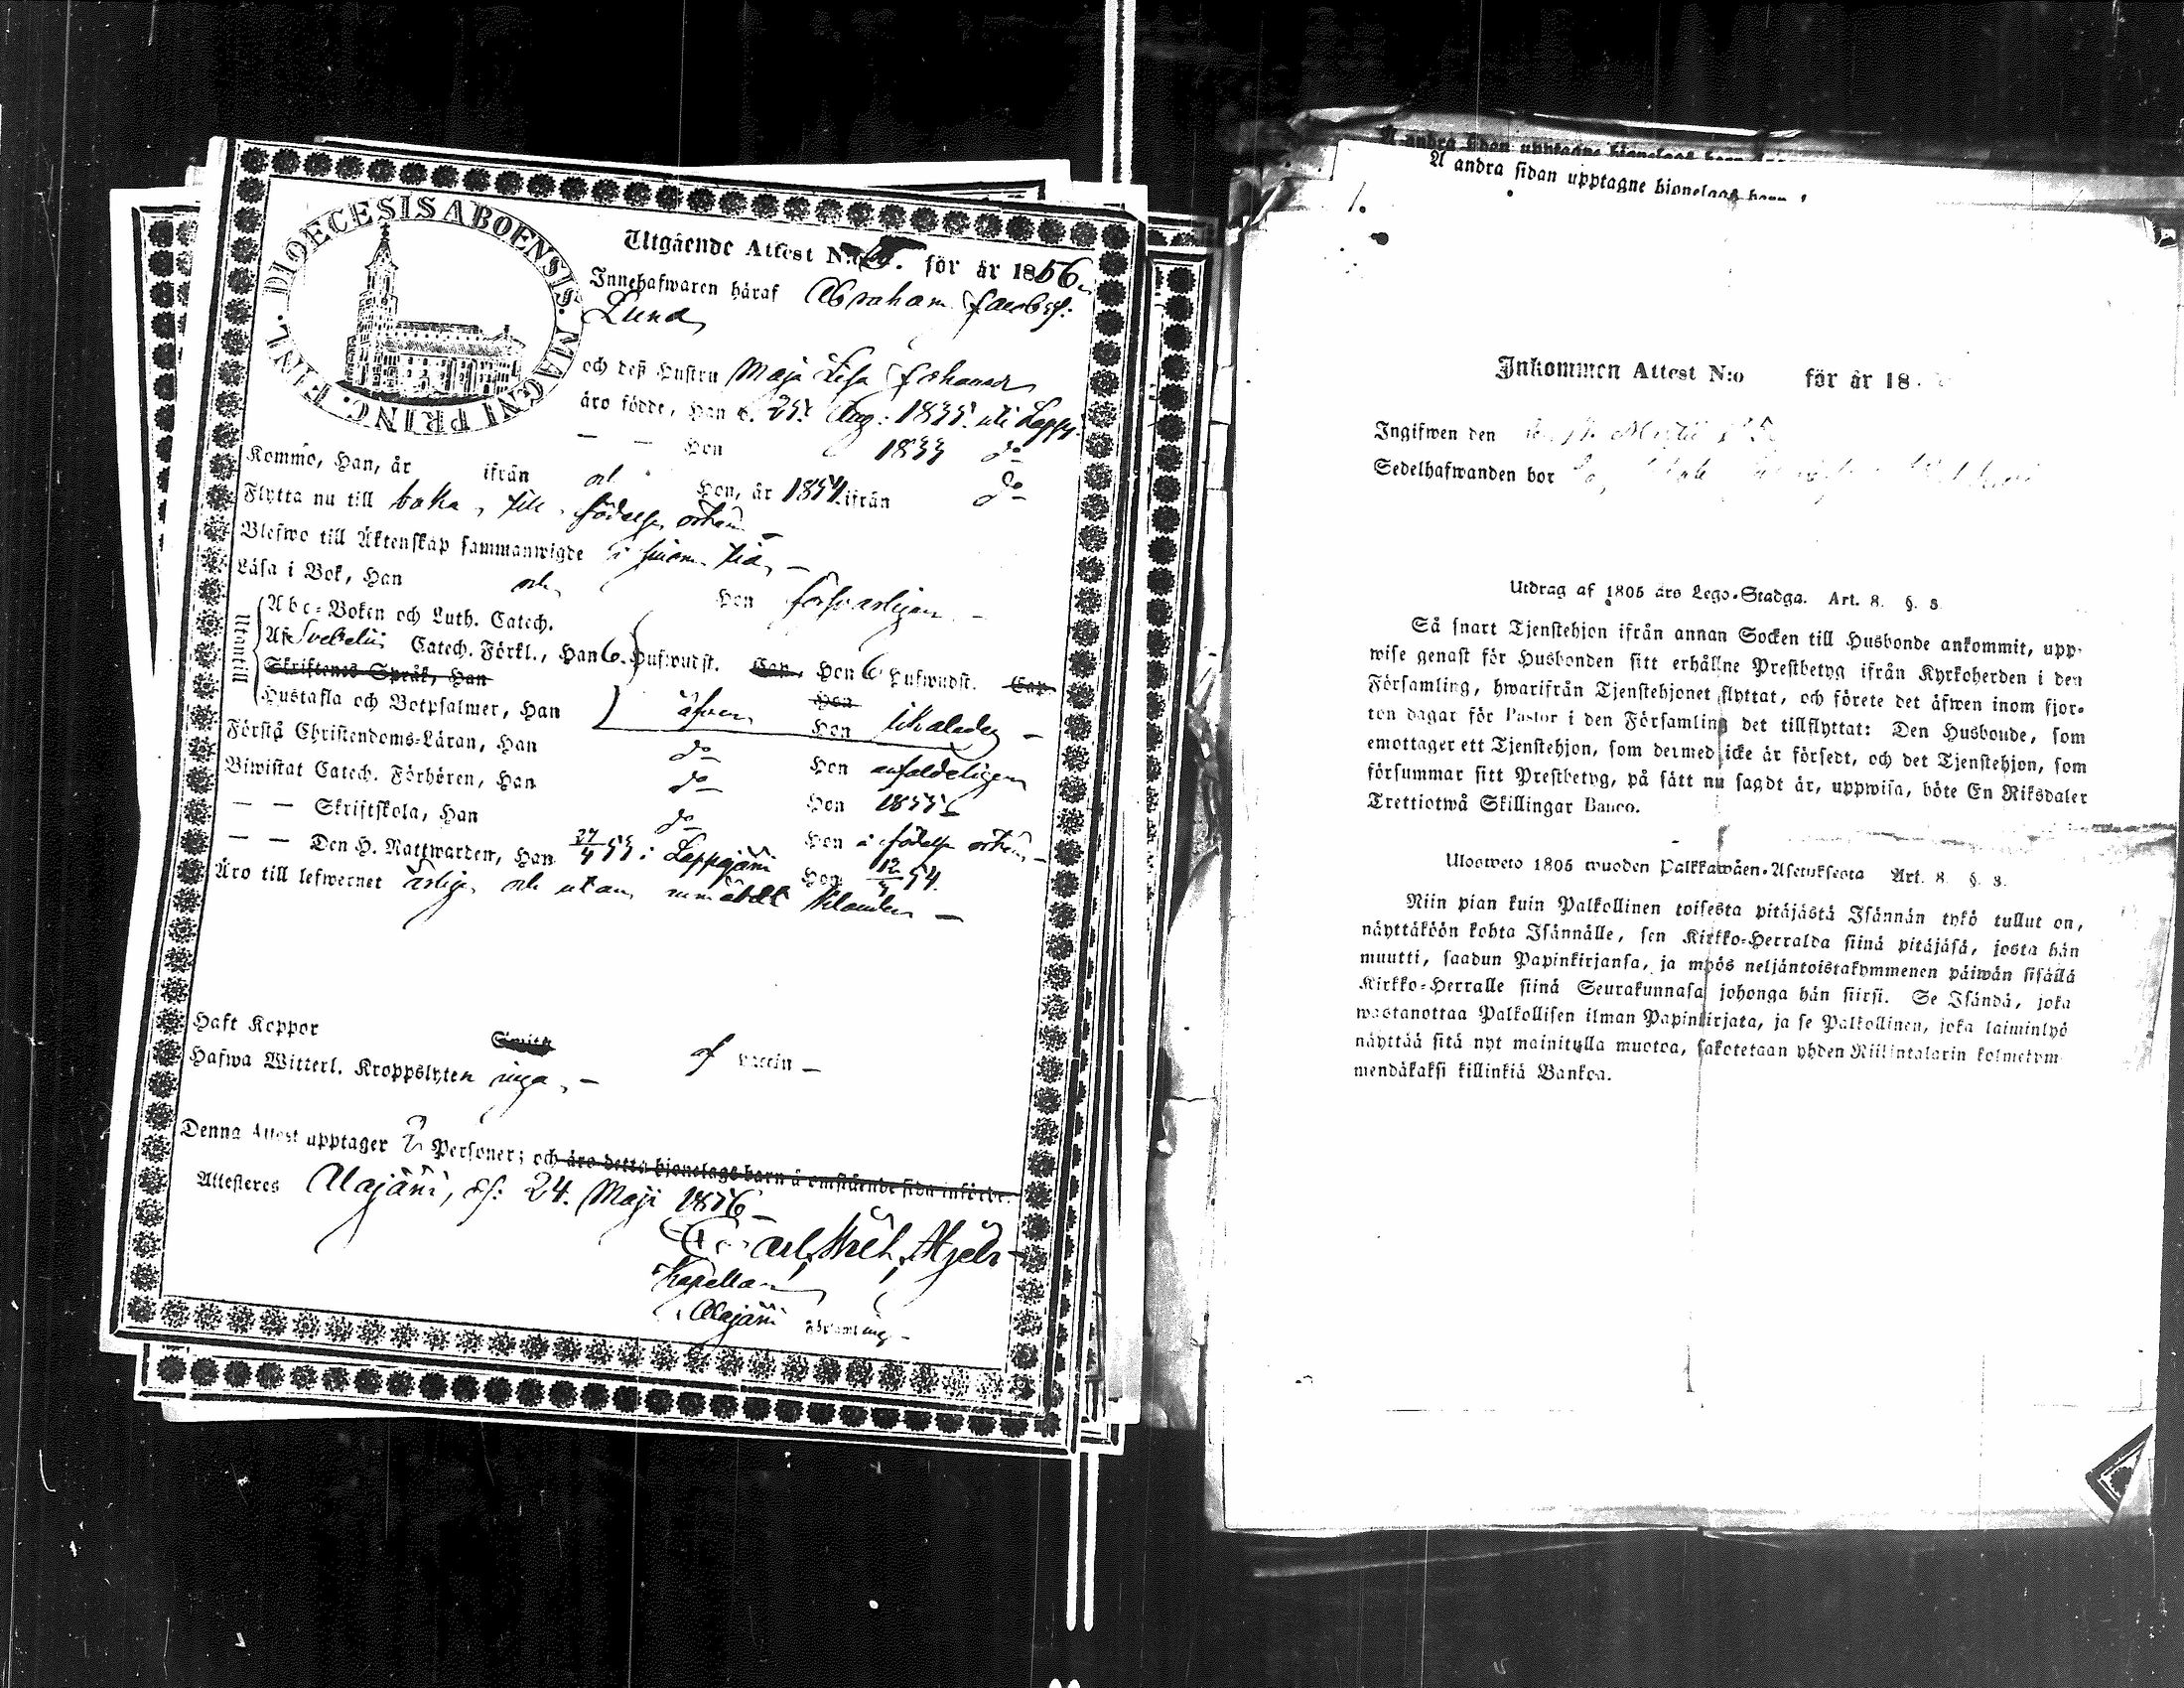 DIOECESIS ABOENSIS. MAGNI PRINC. FINL.
Utgående Attest N:o för år 1856.
Innehafwaren häraf Abraham Jacobsf:
Lund
och deß Hustru Maja Lisa Johansd
äro födde, Han d. 25. Aug: 1835 uti Lappj.
— — Hon 1833 do
Komme, Han, år ifrån och Hon, år 1854 ifrån do
Flytta nu till baka, till födelse orten
Blefwo till Äktenskap sammanwigde i sinom tid, —
Läsa i Bok, Han och Hon försvarligen —
Utantill
Abc-Boken och Luth. Catech.
Af Svebelii Catech. Förkl., Han 6. Hufwudst. Cap. Hon 6 Hufwudst. Cap.
Skriftenes Språk, Han Hon
Hustafla och Botpsalmer, Han äfven Hon likaledes —
Förstå Christendoms-Läran, Han do Hon enfaldeligen
Biwistat Catech. Förhören, Han do Hon 1855
— — Skriftskola, Han do Hon i födelse orten —
— — Den H. Nattwarden, Han 27/4 55 i Lappajärvi Hon 12/54.
Äro till lefwernet ärlige och utan klander —
Haft Koppor Smitt af vaccin —
Hafwa Witterl. Kroppslyten inga, —
Denna Attest upptager 2 Personer; och äro detta hjonelags barn å omstående sida införde.
Attesteres Alajärvi, d: 24. Maji 1856
Kapellan
i Alajärvi Församling —
Å andra sidan upptagne hjonelags barn
Å andra sidan upptagne hjonelags barn
1.
Inkommen Attest N:o för år 18
Ingifwen den
Sedelhafwanden bor
Utdrag af 1805 års Lego-Stadga. Art. 8. §. 3.
Så snart Tjenstehjon ifrån annan Socken till Husbonde ankommit, upp-
wise genast för Husbonden sitt erhållne Prestbetyg ifrån Kyrkoherden i den
Församling, hwarifrån Tjenstehjonet flyttat, och förete det äfwen inom fjor-
ton dagar för Pastor i den Församling det tillflyttat: Den Husbonde, som
emottager ett Tjenstehjon, som dermed icke är försedt, och det Tjenstehjon, som
försummar sitt Prestbetyg, på sätt nu sagdt är, uppwisa, böte En Riksdaler
Trettiotwå Skillingar Banco.
Ulosweto 1805 wuoden Palkkawäen-Asetuksesta Art. 8. §. 3.
Niin pian kuin Palkollinen toisesta pitäjästä Isännän tykö tullut on,
näyttäköön kohta Isännälle, sen Kirkko-Herralda siinä pitäjäsä, josta hän
muutti, saadun Papinkirjansa, ja myös neljäntoistakymmenen päiwän sisällä
Kirkko-Herralle siinä Seurakunnasa johonga hän siirsi. Se Isändä, joka
wastanottaa Palkollisen ilman Papinkirjata, ja se Palkollinen, joka laiminlyö
näyttää sitä nyt mainitulla muotoa, sakotetaan yhden Riikintalarin kolmekym
mendäkaksi killinkiä Bankoa.